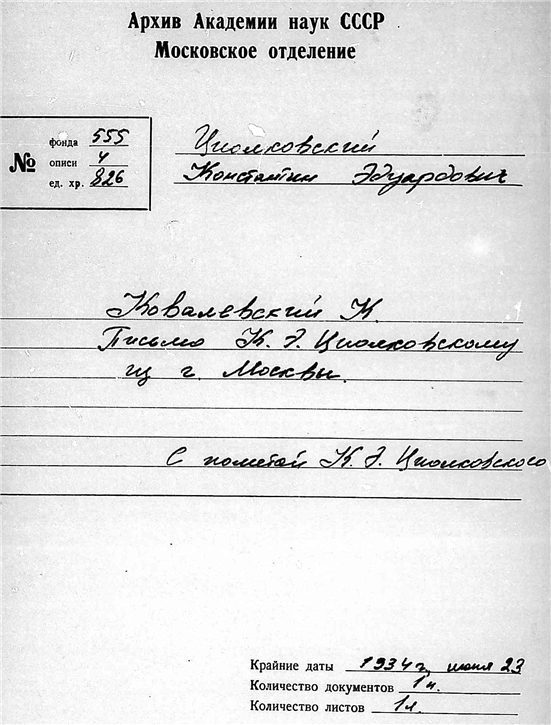 Архив Академии наук СССР
Московское отделение
№
фонда 555
описи 4
ед. хр. 826
Циолковский
Константин Эдуардович
Ковалевский К.
Письмо К. Э. Циолковскому
из г. Москвы.
С пометой К. Э. Циолковского
Крайние даты 1934 г, июня 23
Количество документов 1 н.
Количество листов 1 л.